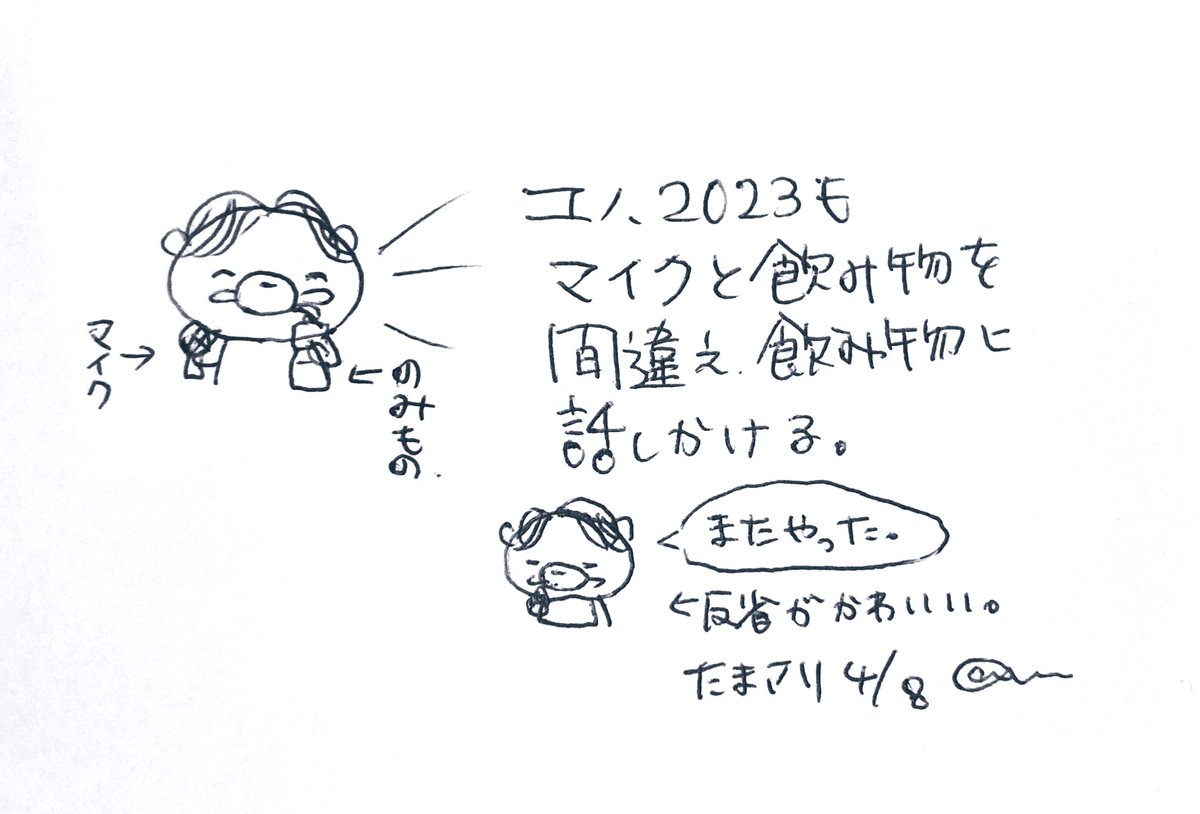 マイク→
←のみもの.
ユノ、2023も
マイクと飲み物を
間違え、飲み物に
話しかける。
またやった。
←反省がかわいいい。
たまアリ 4/8